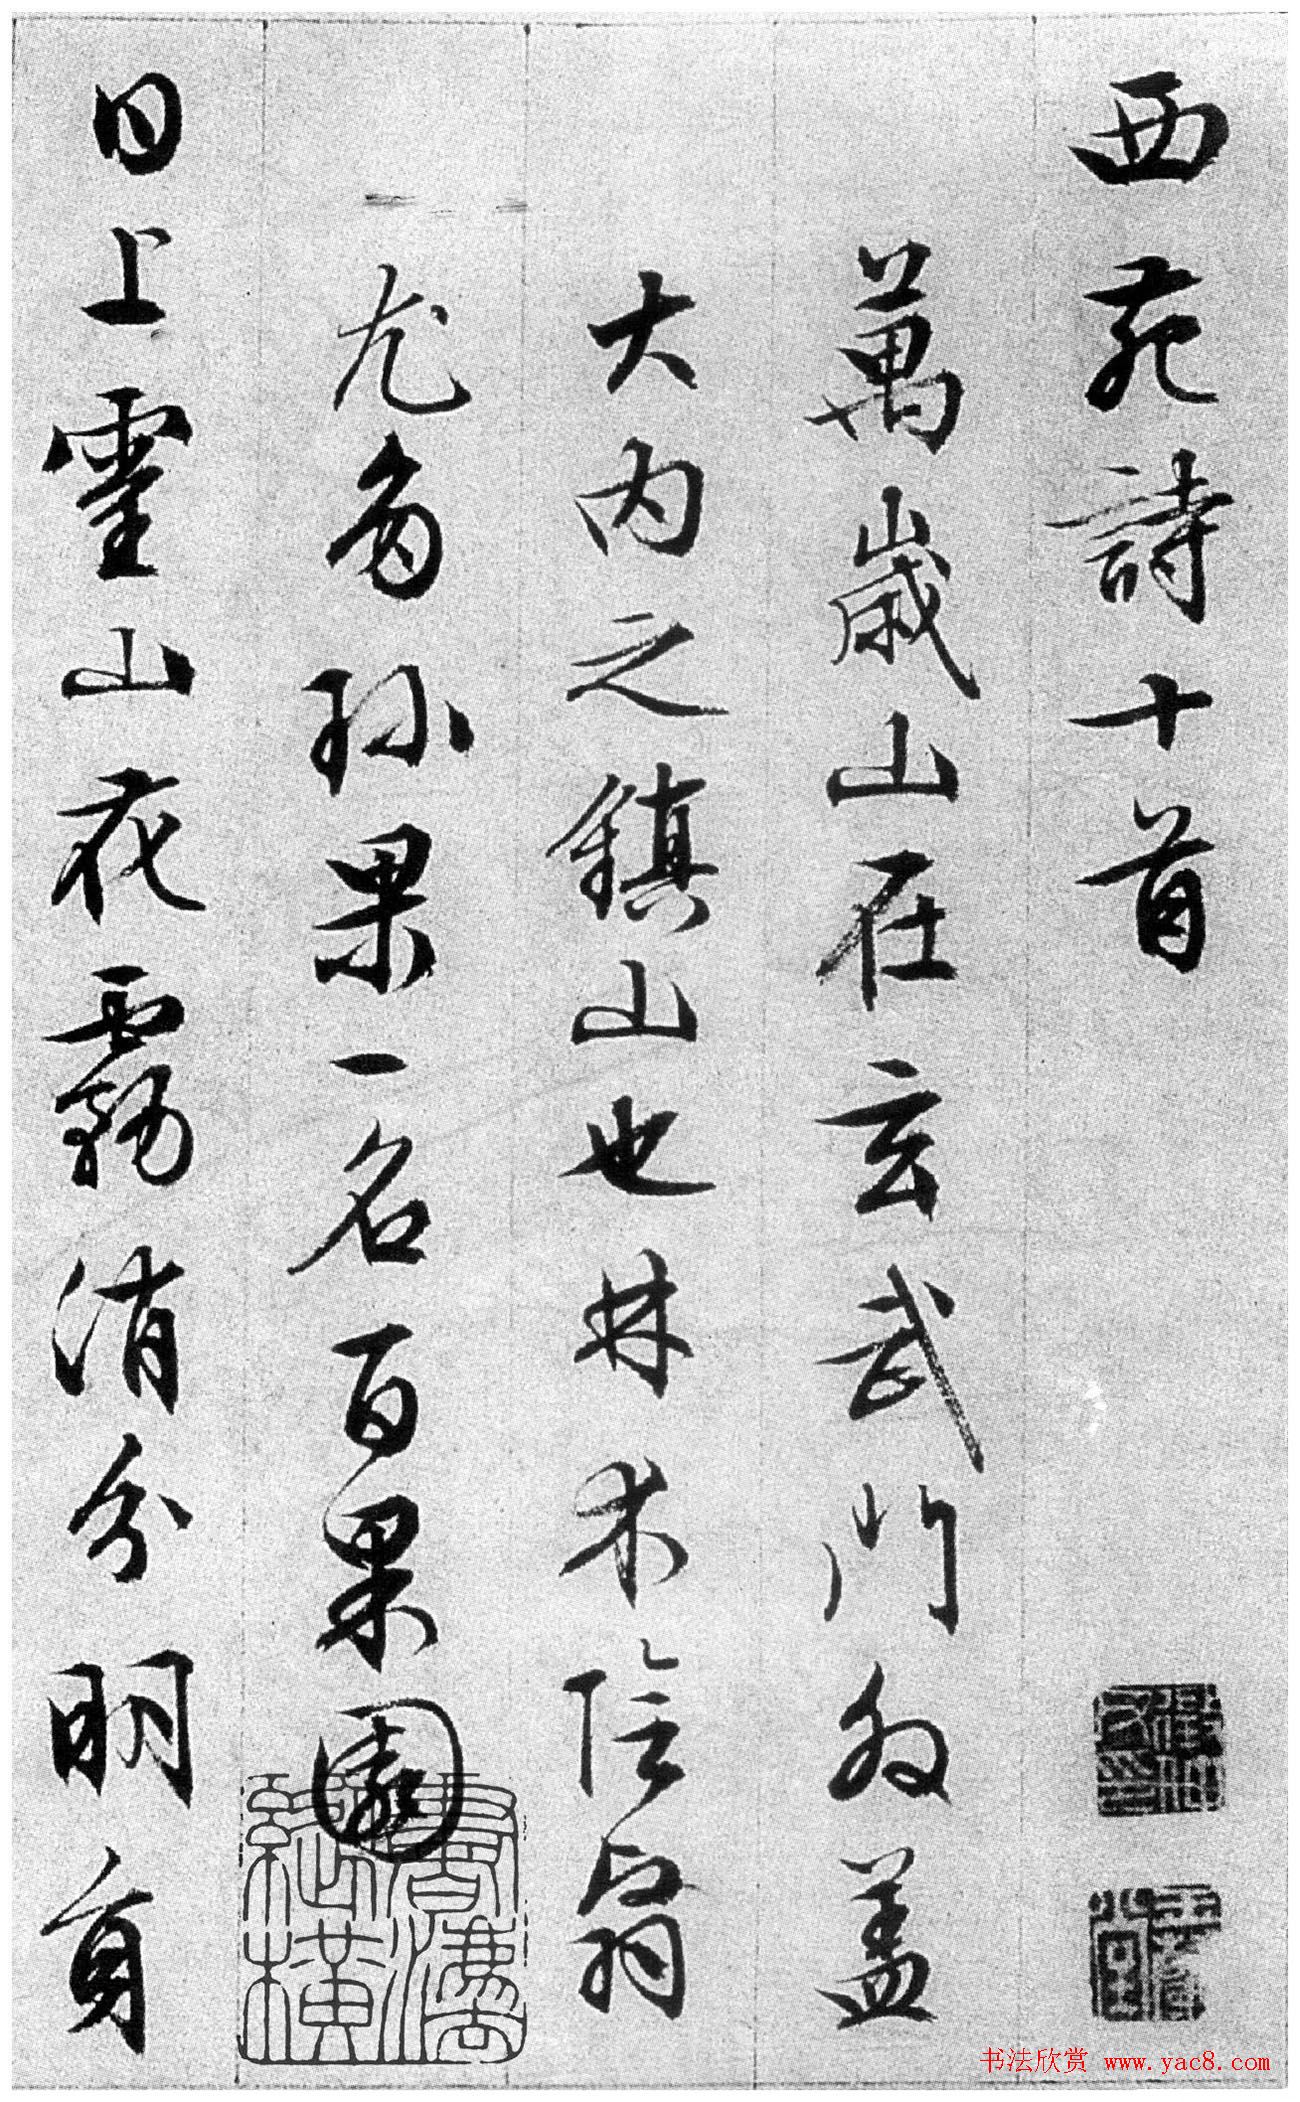 西苑詩十首
萬歲山在玄武門外蓋
大内之鎮山也林木陰翳
尤多珎果一名百果園
日上靈山花霧消分明身
書法欣賞 www.yac8.com